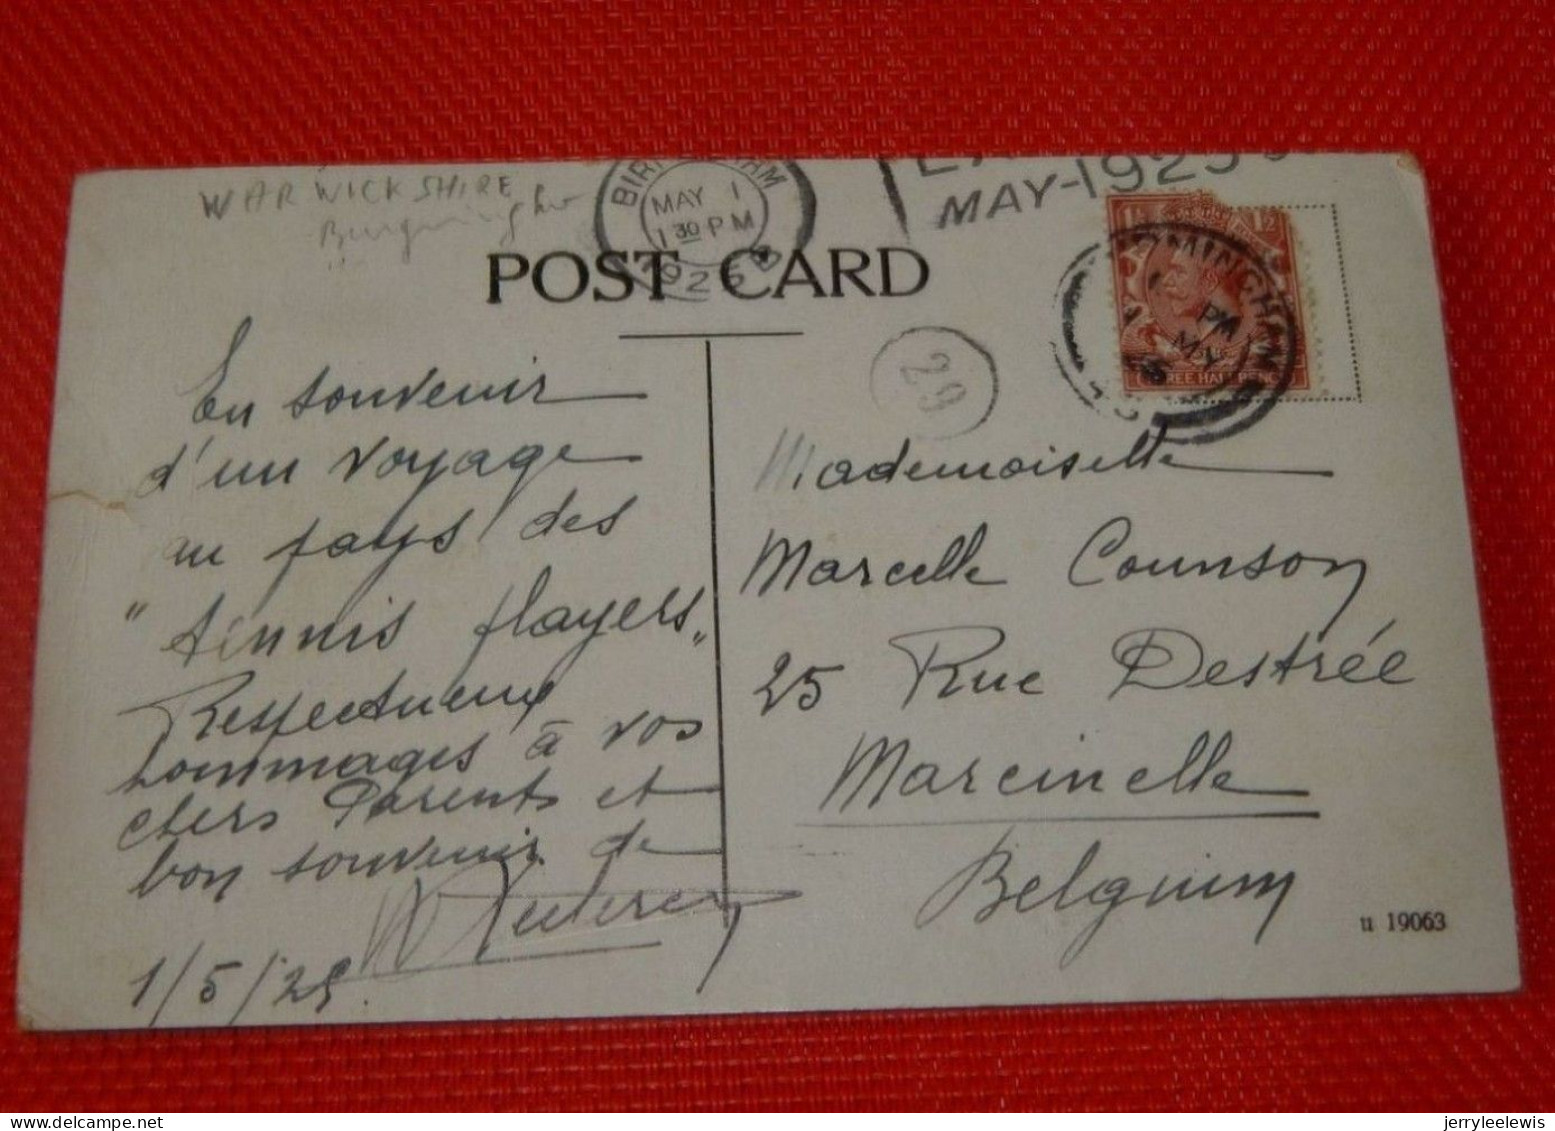 WARWICKSHIRE
BIRMINGHAM
MAY 1
1 30 PM
1925
MAY-1925
POST CARD
29
1½ 1½
En souvenir
d'un voyage
au pays des
"tennis players"
Respectueux
hommages à vos
chers Parents et
bon souvenir de
1/5/25.
Mademoiselle
Marcelle Counson
25 Rue Destrée
Marcinelle
Belgium
u 19063
jerryleelewis